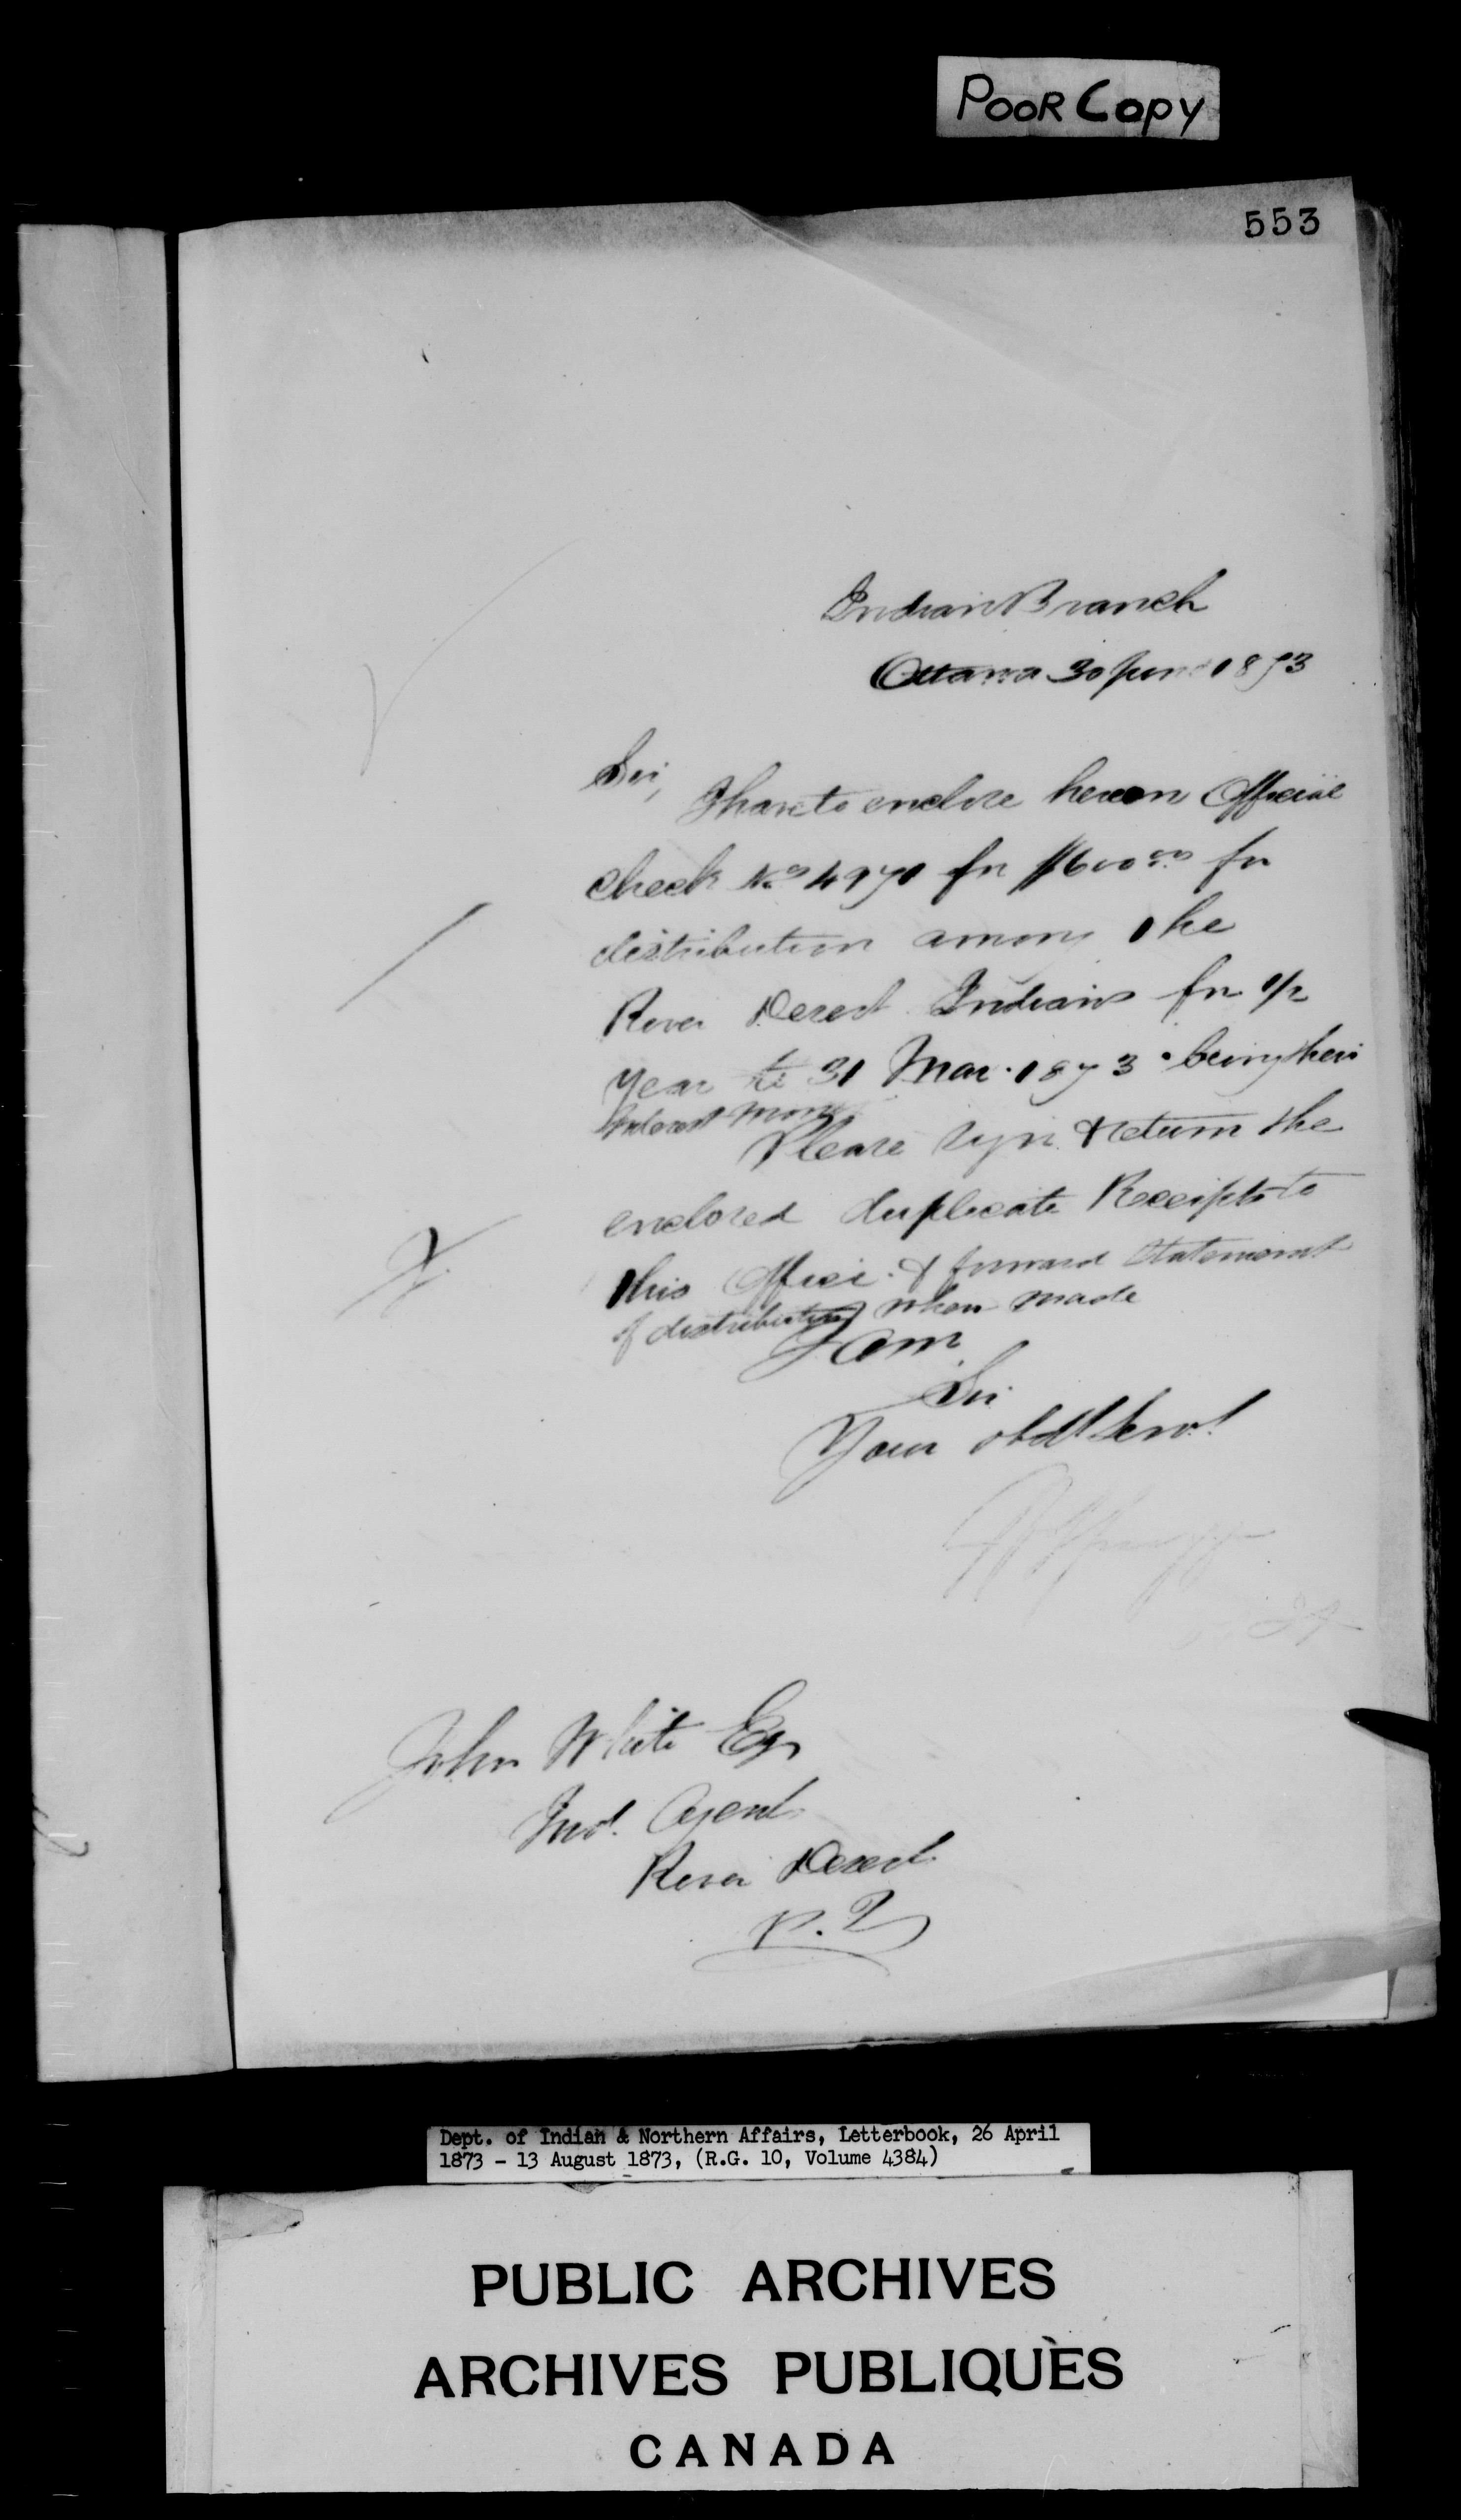 POOR COPY
553
Indian Branch
Ottawa 30 June 1873
Sir,
I have to enclose herein Official
Check No 4970 for $600.00 for
distribution among the
River Desert Indians for 1/2
year to 31 Mar. 1873 being their
Interest money
Please sign & return the
enclosed duplicate Receipts to
this Office. & forward Statement
of distribution when made
I am
Sir
Your obdt Servt
John White Esq
Ind. Agent
River Desert
P.Q
Dept. of Indian & Northern Affairs, Letterbook, 26 April
1873 - 13 August 1873, (R.G. 10, Volume 4384)
PUBLIC ARCHIVES
ARCHIVES PUBLIQUES
CANADA